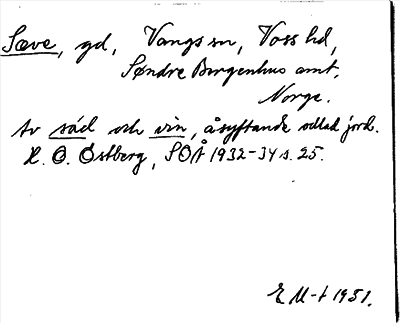 Sæve, gd, Vangs sn, Voss hd,
Søndre Bergenhus amt,
Norge.
Av säd och vin, åsyftande odlad jord.
H. O. Östberg, SOÅ 1932-34 s. 25.
E M-t 1951.